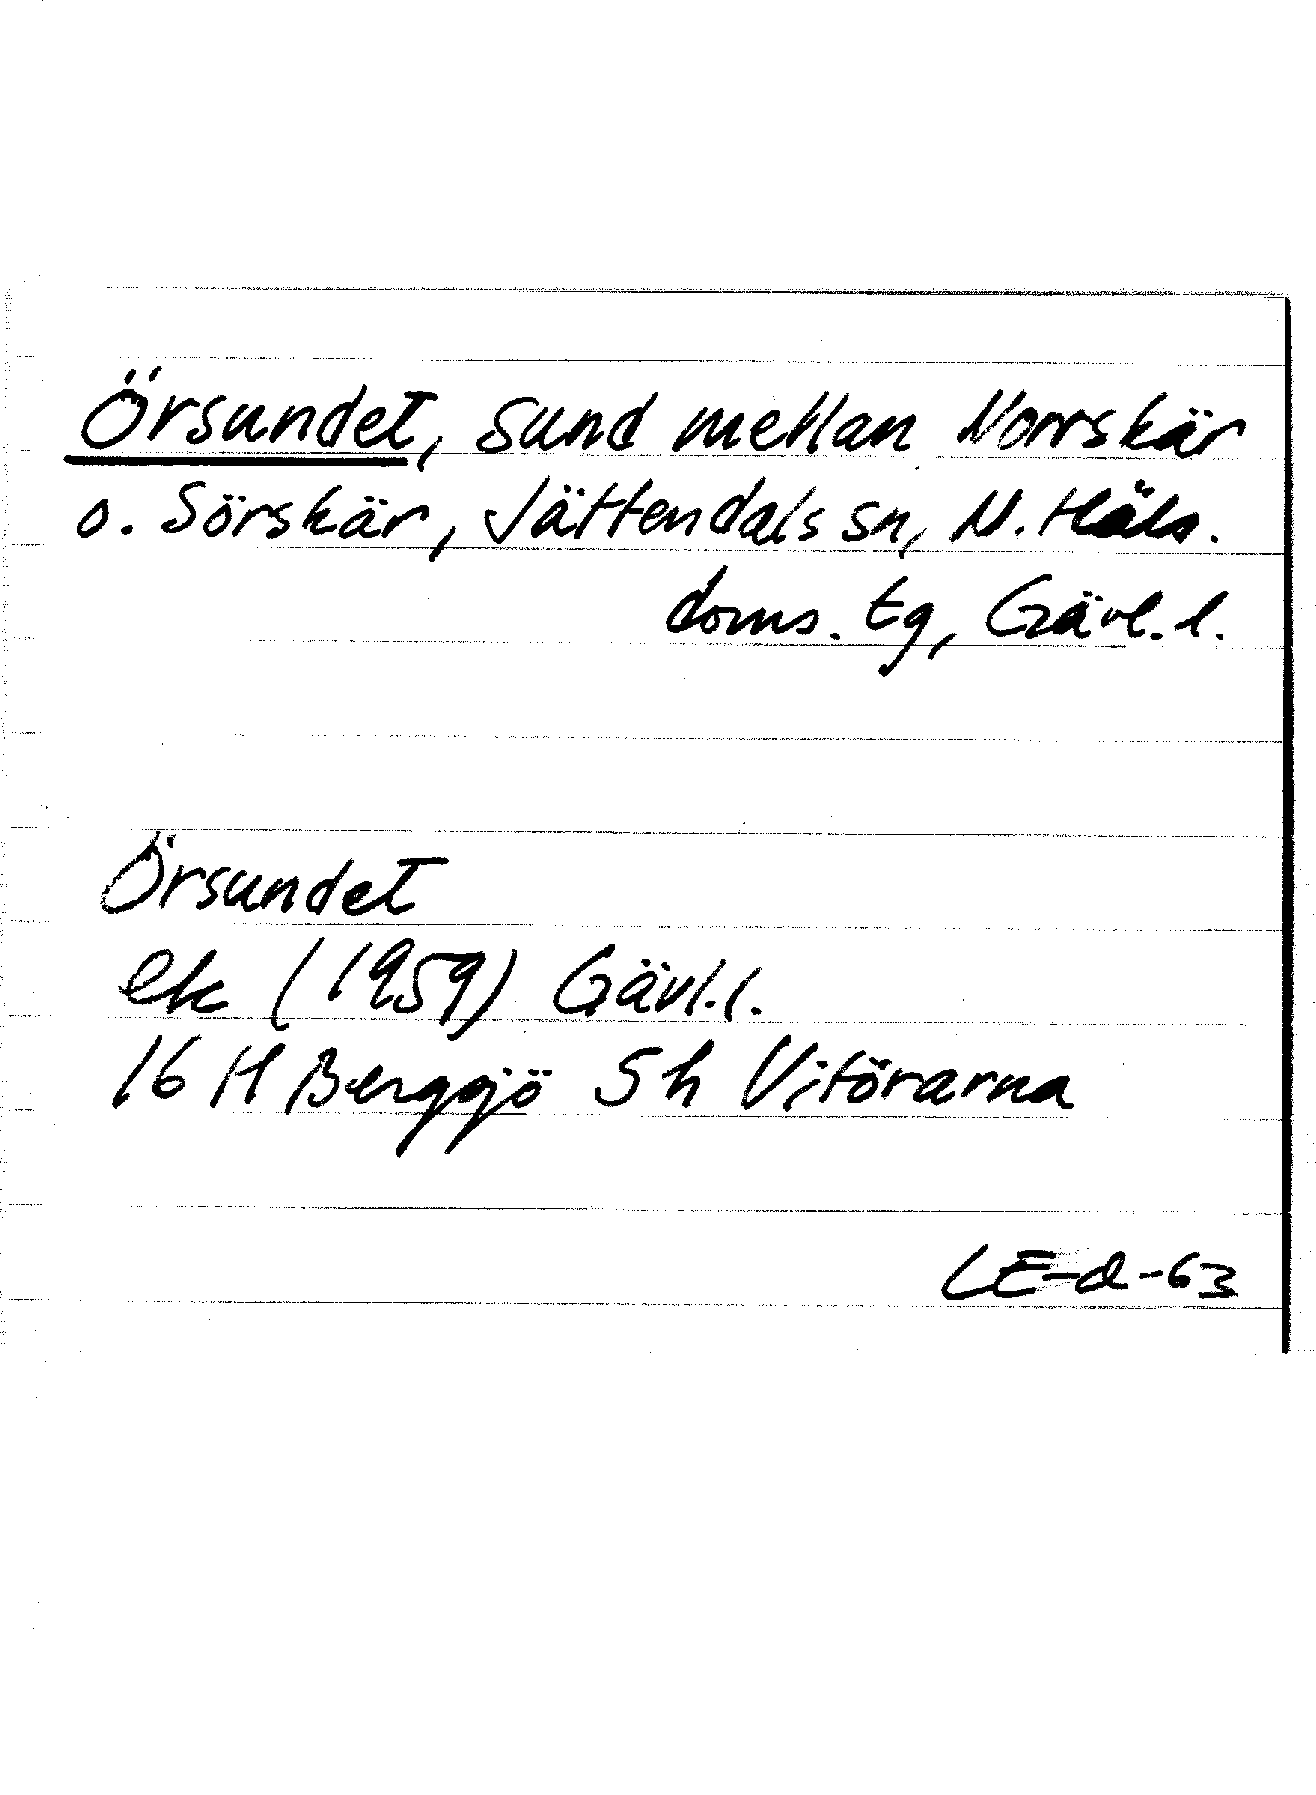 Örsundet, sund mellan Norrskär
o. Sörskär, Jättendals sn, N. Häls.
doms. tg, Gävl. l.
Örsundet
ek (1959) Gävl. l.
16 H Berggjö S h Vitörarna
LE-d-63